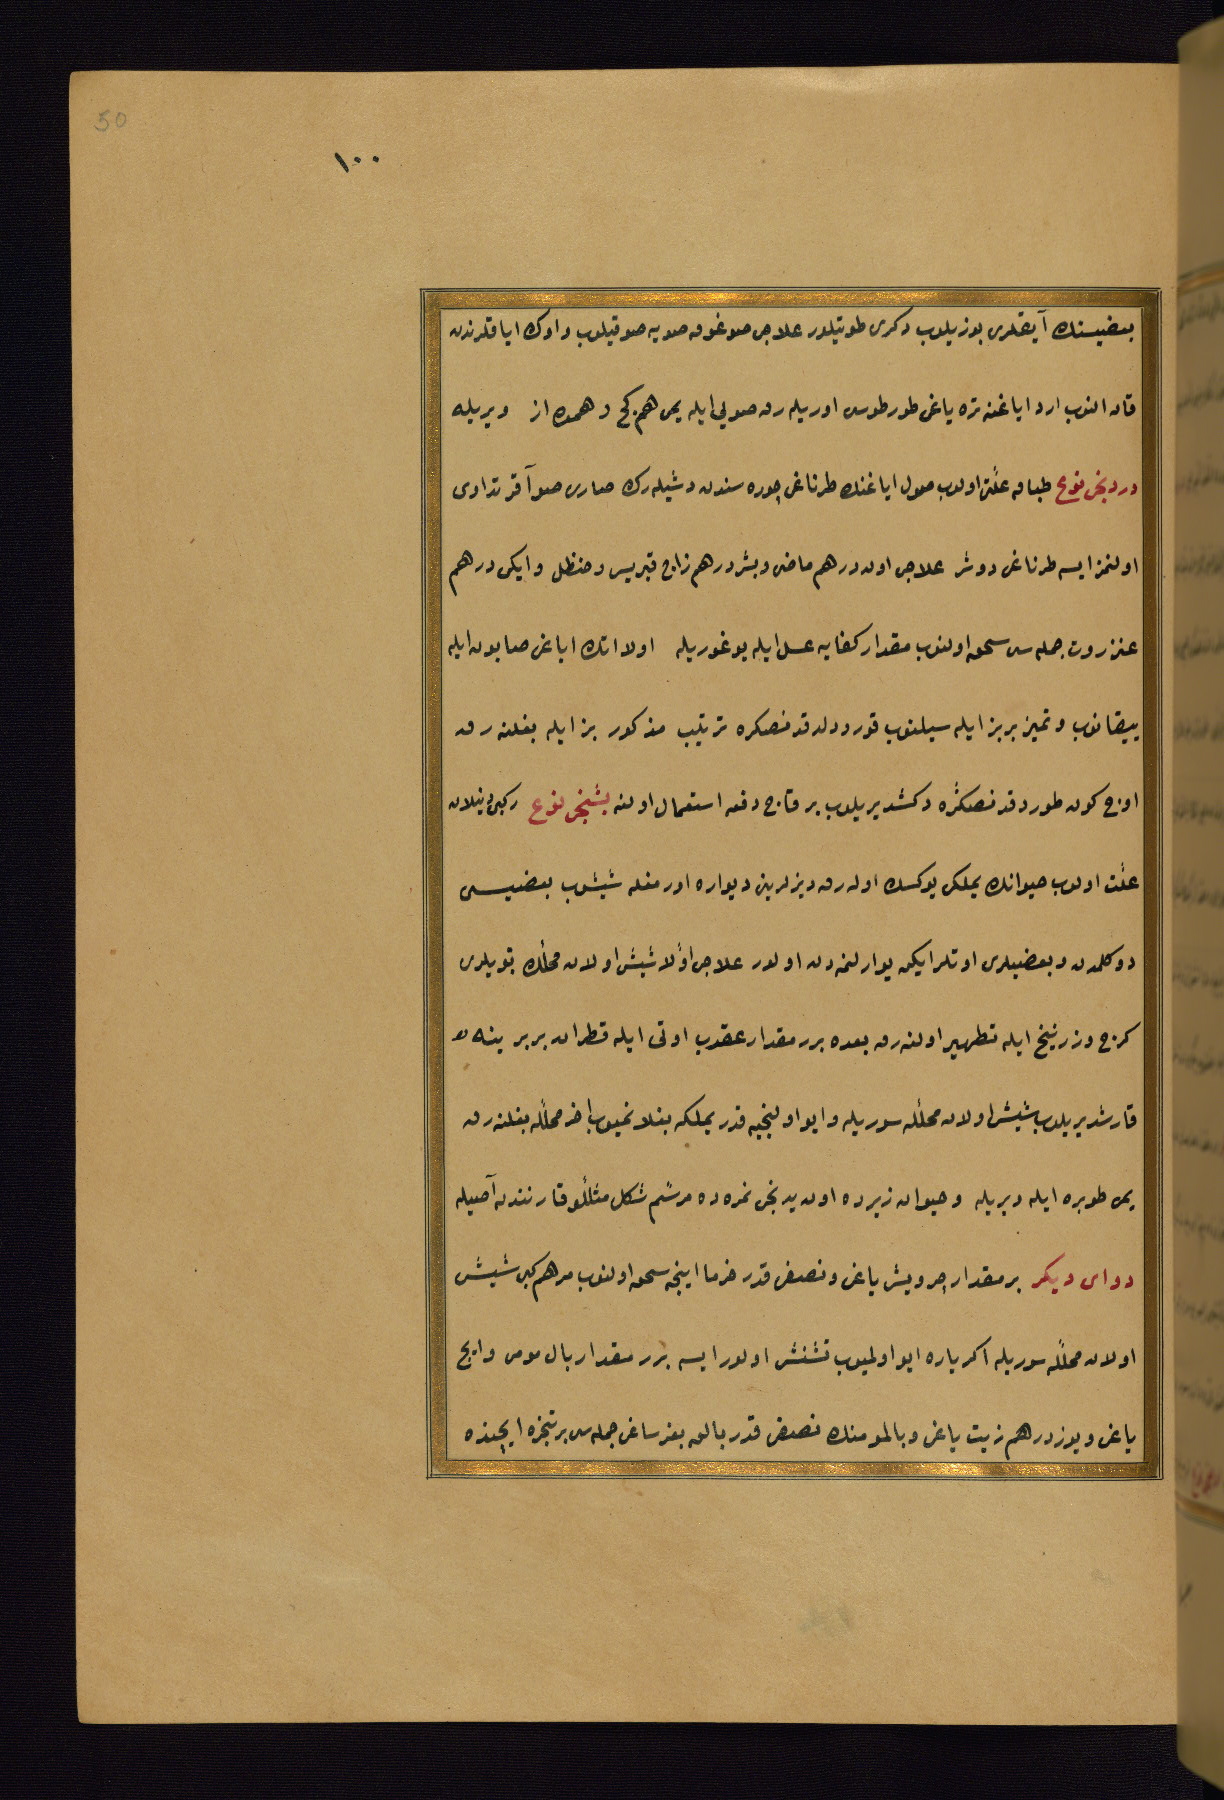 50
١٠٠
بعضیسنك آیقلری بوزیلوب دكری طوتیلور علاجی صوغوق صویه صوقیلوب و اوك ایاقلرندن
قان النوب ارد ایاغنه تره یاغی طورطوسی اوریله رق صولی ایله یمی هم كچ و هم ده از ویریله
دردنجی نوع طباق علتی اولوب صول ایاغنك طرناغی چوره سندن دشیله رك صاری صو آقر تداوی
اولنمز ایسه طرناغی دوشر علاجی اون درهم ماضی و بش درهم زاج قبریس و حنظل و ایكی درهم
عنزروت جمله سی سحق اولنوب مقدار كفایه عسل ایله یوغوریله اولا اتك ایاغی صابون ایله
ییقانوب و تمیز بر بز ایله سیلنوب قورودلدقدنصكره ترتیب مذكور بز ایله بغلنه رق
اوچ كون طوردقدنصكره دكشدیریلوب بر قاچ دفعه استعمال اولنه بشنجی نوع ركبی دینلان
علت اولوب حیوانك یملكی یوكسك اوله رق دیزلرینی دیواره اورمغله شیشوب بعضیسی
دوكلمدن و بعضیلری اوتلرایكن یوارلنمه دن اولور علاجی اولا شیش اولان محلك تویلری
كرج و زرنیخ ایله تطهیر اولنه رق بعده برر مقدار عقرب اوتی ایله قطران بربرینه
قارشدیریلوب شیش اولان محلله سوریله و ایو اولنجیه قدر یملكه بغلانمیوب اخر محلله بغلنه رق
یمی طوبره ایله ویریله و حیوان زیرده اون یدنجی نمره ده مرسم شكل مثللو قارنندن آصیله
دوای دیكر بر مقدار چرویش یاغی و نصفی قدر خرما اینجه سحق اولنوب مرهم كبی شیش
اولان محلله سوریله اكر یاره ایو اولمیوب تشنش اولور ایسه برر مقدار بال مومی و ایچ
یاغی و یوز درهم زیت یاغی و بالمومنك نصفی قدر بالق بغرساغی جمله سی بر تنجره ایچنده